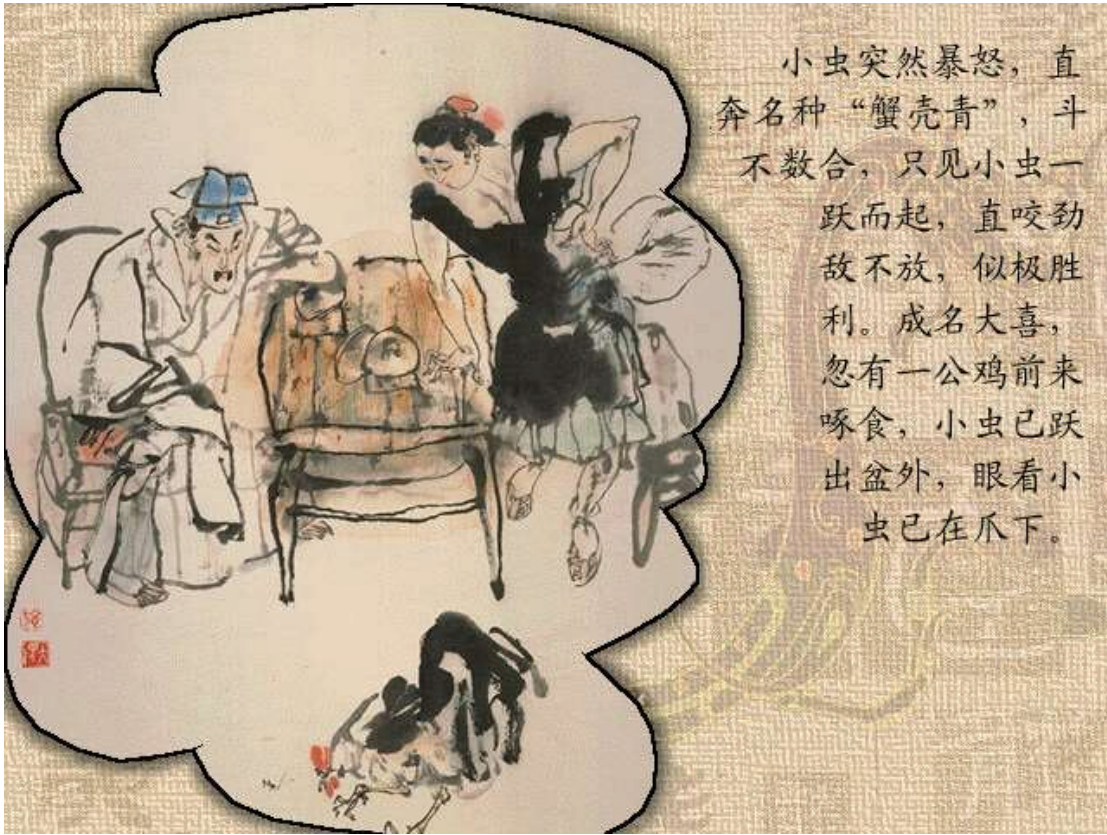 小虫突然暴怒，直
奔名种“蟹壳青”，斗
不数合，只见小虫一
跃而起，直咬劲
敌不放，似极胜
利。成名大喜，
忽有一公鸡前来
啄食，小虫已跃
出盆外，眼看小
虫已在爪下。